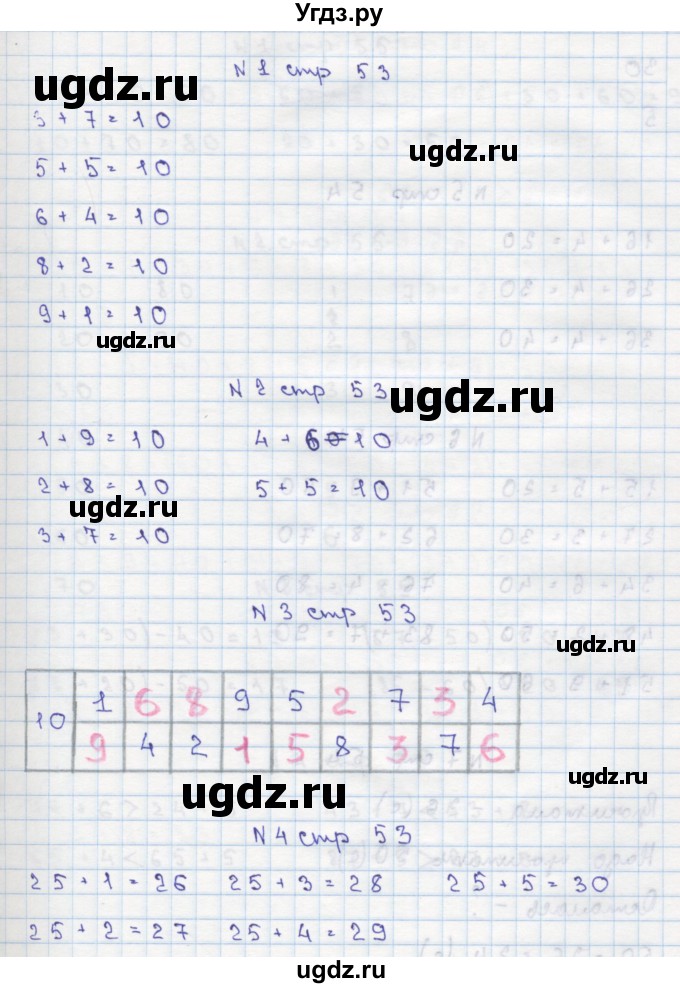 Угдз.ру
N 1 стр 53
ugdz.ru
3 + 7 = 10
ugdz.ru
5 + 5 = 10
6 + 4 = 10
8 + 2 = 10
9 + 1 = 10
ugdz.ru
N 2 стр 53
ugdz.ru
1 + 9 = 10 4 + 6 = 10
2 + 8 = 10 5 + 5 = 10
ugdz.ru
3 + 7 = 10
N 3 стр 53
ugdz.ru
10 1 6 8 9 5 2 7 3 4
9 4 2 1 5 8 3 7 6
ugdz.ru
ugdz.ru
N 4 стр 53
25 + 1 = 26 25 + 3 = 28 25 + 5 = 30
25 + 2 = 27 25 + 4 = 29
ugdz.ru